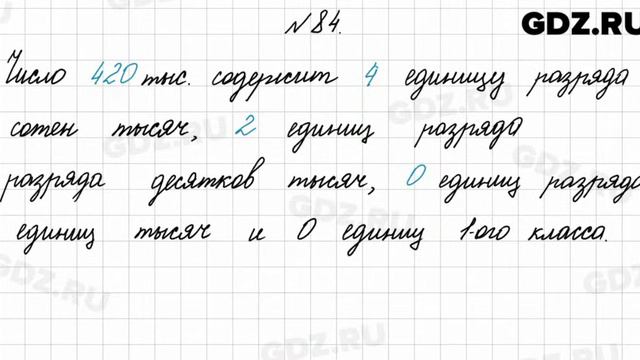 №84.
GDZ.RU
Число 420 тыс. содержит 4 единицу разряда
сотен тысяч, 2 единиц разряда
разряда десятков тысяч, 0 единиц разряда
единиц тысяч и 0 единиц 1-ого класса.